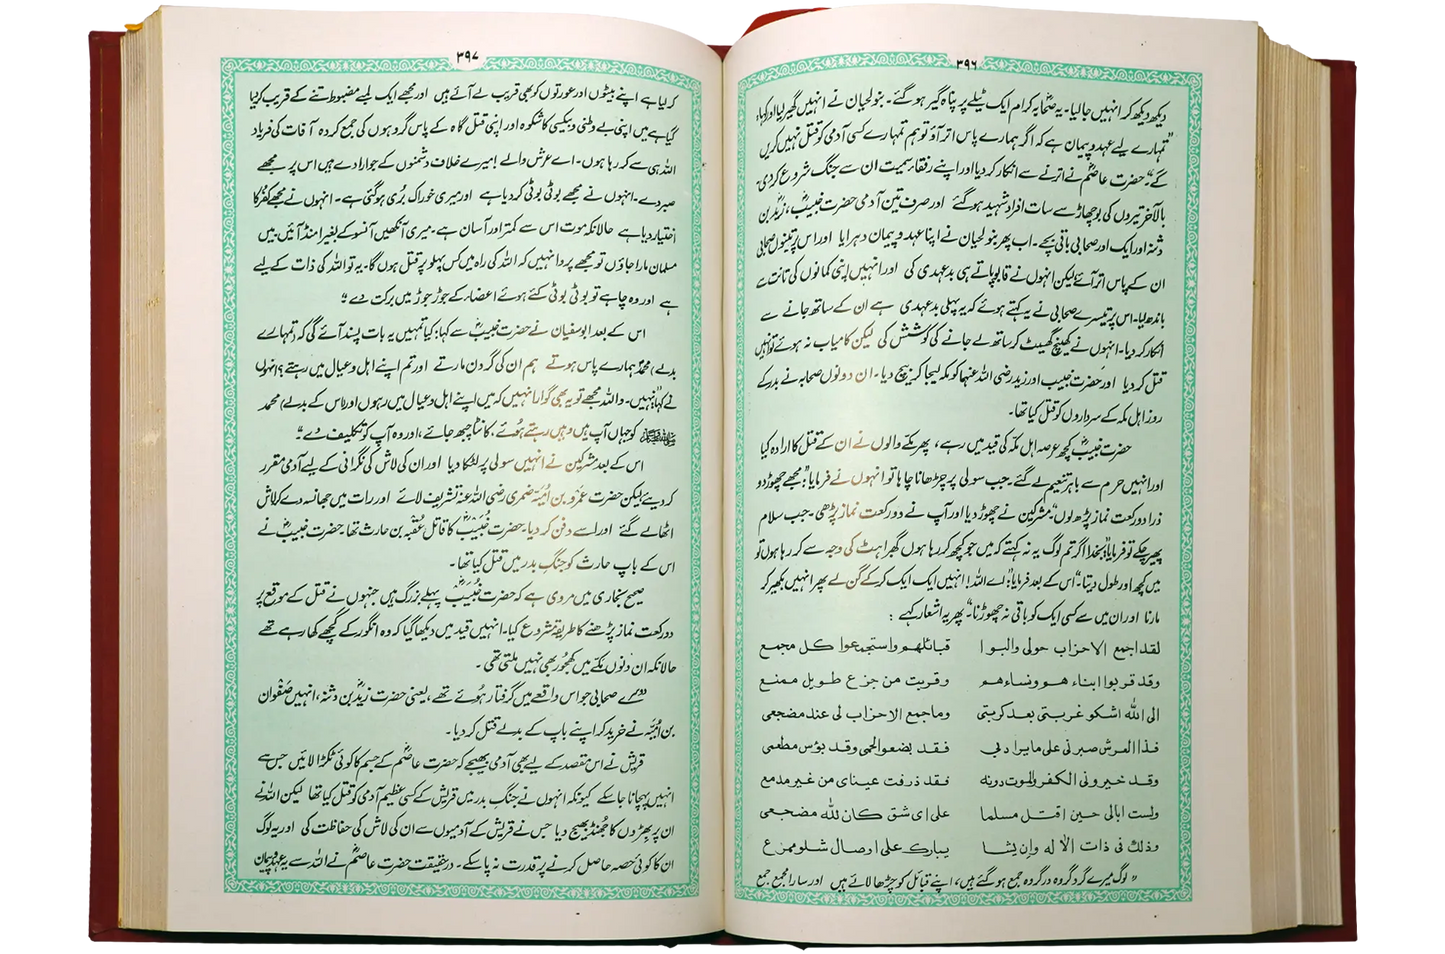 ۳۹۶
دیکھ دیکھ کر انہیں جا لیا۔ یہ صحابہ کرام ایک ٹیلے پر پناہ گیر ہو گئے۔ بنو لحیان نے انہیں گھیر لیا اور کہا،
”تمہارے لیے عہد و پیمان ہے کہ اگر ہمارے پاس اتر آؤ تو ہم تمہارے کسی آدمی کو قتل نہیں کریں
گے“۔ حضرت عاصمؓ نے اترنے سے انکار کر دیا اور اپنے رفقاء سمیت ان سے جنگ شروع کر دی۔
بالآخر تیروں کی بوچھاڑ سے سات افراد شہید ہو گئے اور صرف تین آدمی حضرت خبیبؓ، زیدؓ بن
دثنہ اور ایک اور صحابی باقی بچے۔ اب پھر بنو لحیان نے اپنا عہد و پیمان دہرایا اور اس پر تینوں صحابی
ان کے پاس اتر آئے لیکن انہوں نے قابو پاتے ہی بدعہدی کی اور انہیں اپنی کمانوں کی تانت سے
باندھ لیا۔ اس پر تیسرے صحابی نے یہ کہتے ہوئے کہ یہ پہلی بدعہدی ہے ان کے ساتھ جانے سے
انکار کر دیا۔ انہوں نے کھینچ گھسیٹ کر ساتھ لے جانے کی کوشش کی لیکن کامیاب نہ ہوئے تو انہیں
قتل کر دیا اور حضرت خبیب اور زید رضی اللہ عنہما کو مکہ لیجا کر بیچ دیا۔ ان دونوں صحابہ نے بدر کے
روز اہل مکہ کے سرداروں کو قتل کیا تھا۔
حضرت خبیبؓ کچھ عرصہ اہل مکہ کی قید میں رہے، پھر مکے والوں نے ان کے قتل کا ارادہ کیا
اور انہیں حرم سے باہر تنعیم لے گئے۔ جب سولی پر چڑھانا چاہا تو انہوں نے فرمایا: ”مجھے چھوڑ دو
ذرا دو رکعت نماز پڑھ لوں“۔ مشرکین نے چھوڑ دیا اور آپ نے دو رکعت نماز پڑھی۔ جب سلام
پھیر چکے تو فرمایا: ”بخدا اگر تم لوگ یہ نہ کہتے کہ میں جو کچھ کر رہا ہوں گھبراہٹ کی وجہ سے کر رہا ہوں تو
میں کچھ اور طول دیتا“۔ اس کے بعد فرمایا: ”اے اللہ! انہیں ایک ایک کر کے گن لے پھر انہیں بکھیر کر
مارنا اور ان میں سے کسی ایک کو باقی نہ چھوڑنا“۔ پھر یہ اشعار کہے :
لقد اجمع الاحزاب حولی والبوا قبائلھم واستجمعوا کل مجمع
وقد قربوا ابناءھم ونساءھم وقربت من جزع طویل ممنع
الی اللہ اشکو غربتی بعد کربتی وما جمع الاحزاب لی عند مضجعی
فذا العرش صبرنی علی ما یراد بی فقد بضعوا لحمی وقد بؤس مطعمی
وقد خیرونی الکفر والموت دونہ فقد ذرفت عینای من غیر مدمع
ولست ابالی حین اقتل مسلما علی ای شق کان للہ مضجعی
وذلک فی ذات الالہ وان یشا یبارک علی اوصال شلو ممزع
”لوگ میرے گرد گروہ در گروہ جمع ہو گئے ہیں، اپنے قبائل کو چڑھا لائے ہیں اور سارا مجمع جمع
۳۹۷
کر لیا ہے اپنے بیٹوں اور عورتوں کو بھی قریب لے آئے ہیں اور مجھے ایک لمبے مضبوط تنے کے قریب کر دیا
گیا ہے میں اپنی بے وطنی و بیکسی کا شکوہ اور اپنی قتل گاہ کے پاس گروہوں کی جمع کردہ آفات کی فریاد
اللہ ہی سے کر رہا ہوں۔ اے عرش والے! میرے خلاف دشمنوں کے جو ارادے ہیں اس پر مجھے
صبر دے۔ انہوں نے مجھے بوٹی بوٹی کر دیا ہے اور میری خوراک بُری ہو گئی ہے۔ انہوں نے مجھے کفر کا
اختیار دیا ہے حالانکہ موت اس سے کمتر اور آسان ہے۔ میری آنکھیں آنسو کے بغیر امنڈ آئیں۔ میں
مسلمان مارا جاؤں تو مجھے پروا نہیں کہ اللہ کی راہ میں کس پہلو پر قتل ہوں گا۔ یہ تو اللہ کی ذات کے لیے
ہے اور وہ چاہے تو بوٹی بوٹی کئے ہوئے اعضاء کے جوڑ جوڑ میں برکت دے“
اس کے بعد ابوسفیان نے حضرت خبیبؓ سے کہا: کیا تمہیں یہ بات پسند آئے گی کہ (تمہارے
بدلے) محمدؐ ہمارے پاس ہوتے ہم ان کی گردن مارتے اور تم اپنے اہل و عیال میں رہتے؟ انہوں
نے کہا، نہیں۔ واللہ مجھے تو یہ بھی گوارا نہیں کہ میں اپنے اہل و عیال میں رہوں اور (اس کے بدلے) محمد
ﷺ کو جہاں آپ ہیں وہیں رہتے ہوئے، کانٹا چبھ جائے، اور وہ آپ کو تکلیف دے“۔
اس کے بعد مشرکین نے انہیں سولی پر لٹکا دیا اور ان کی لاش کی نگرانی کے لیے آدمی مقرر
کر دیئے لیکن حضرت عمرو بن امیہ ضمری رضی اللہ عنہ تشریف لائے اور رات میں جھانسہ دے کر لاش
اٹھا لے گئے اور اسے دفن کر دیا۔ حضرت خبیبؓ کا قاتل عقبہ بن حارث تھا۔ حضرت خبیبؓ نے
اس کے باپ حارث کو جنگ بدر میں قتل کیا تھا۔
صحیح بخاری میں مروی ہے کہ حضرت خبیبؓ پہلے بزرگ ہیں جنہوں نے قتل کے موقع پر
دو رکعت نماز پڑھنے کا طریقہ شروع کیا۔ انہیں قید میں دیکھا گیا کہ وہ انگور کے گچھے کھا رہے تھے
حالانکہ ان دنوں مکے میں کھجور بھی نہیں ملتی تھی۔
دوسرے صحابی جو اس واقعے میں گرفتار ہوئے تھے، یعنی حضرت زیدؓ بن دثنہ، انہیں صفوان
بن امیہ نے خرید کر اپنے باپ کے بدلے قتل کر دیا۔
قریش نے اس مقصد کے لیے بھی آدمی بھیجے کہ حضرت عاصمؓ کے جسم کا کوئی ٹکڑا لائیں جس سے
انہیں پہچانا جا سکے کیونکہ انہوں نے جنگ بدر میں قریش کے کسی عظیم آدمی کو قتل کیا تھا لیکن اللہ نے
ان پر بھِڑوں کا جھُنڈ بھیج دیا جس نے قریش کے آدمیوں سے ان کی لاش کی حفاظت کی اور یہ لوگ
ان کا کوئی حصہ حاصل کرنے پر قدرت نہ پا سکے۔ درحقیقت حضرت عاصمؓ نے اللہ سے یہ عہد و پیمان